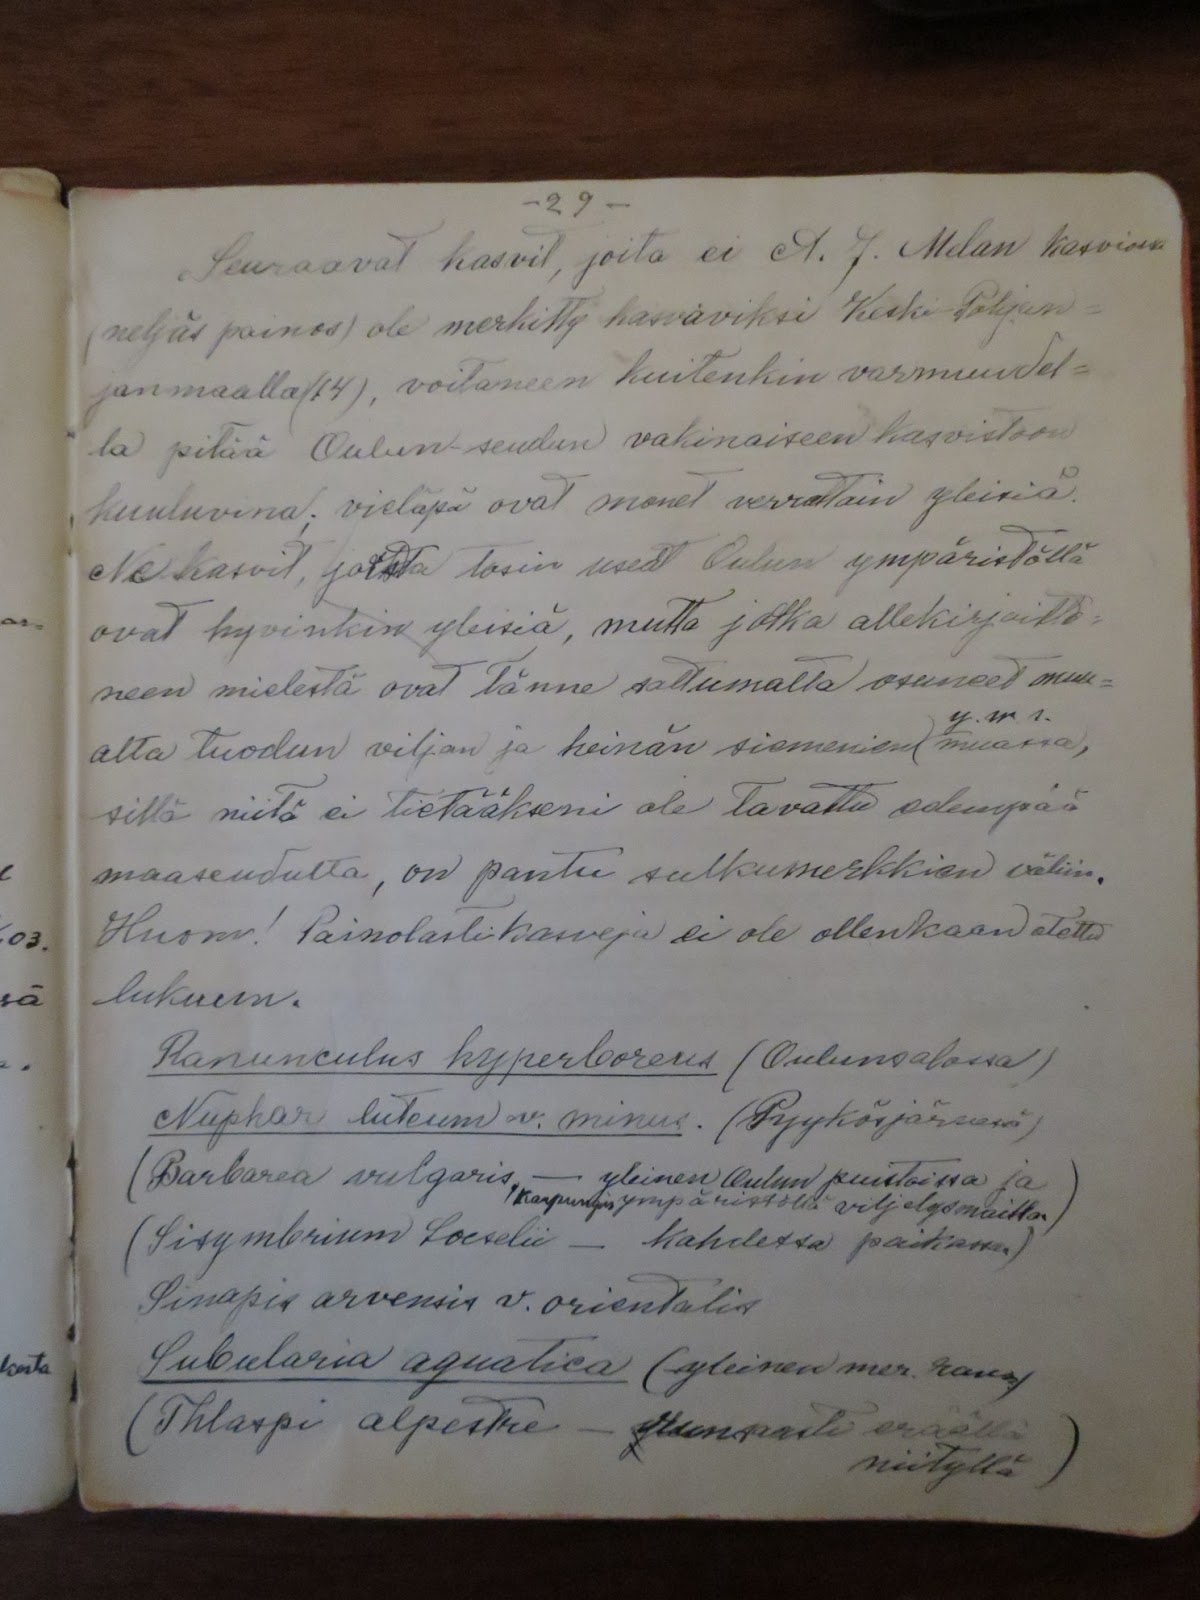 -29-
Seuraavat kasvit, joita ei A. J. Melan kasviossa
(neljäs painos) ole merkitty kasvaviksi Keski-Pohjan=
janmaalla(14), voitaneen kuitenkin varmuudel=
la pitää Oulun-seudun vakinaiseen kasvistoon
kuuluvina; vieläpä ovat monet verrattain yleisiä.
Ne kasvit, joista tosin useat Oulun ympäristöllä
ovat hyvinkin yleisiä, mutta jotka allekirjoitta=
neen mielestä ovat tänne sattumalta osuneet muu=
y. m s.
alta tuodun viljan ja heinän siemenien( muassa,
sillä niitä ei tietääkseni ole tavattu edempää
maaseudulta, on pantu sulkumerkkien väliin.
Huom! Painolastikasveja ei ole ollenkaan otettu
lukuun.
Ranunculus hyperboreus (Oulunsalossa)
Nuphar luteum v. minus. (Pyykösjärvessä)
(Barbarea vulgaris, — yleinen Oulun puistoissa ja
kaupungin ympäristöllä viljelysmailla.)
(Sisymbrium Loeselii — kahdessa paikassa.)
Sinapis arvensis v. orientalis
Subularia aquatica (yleinen mer. rann.)
(Thlaspi alpestre — eräällä
niityllä)
as=
03.
sä
a.